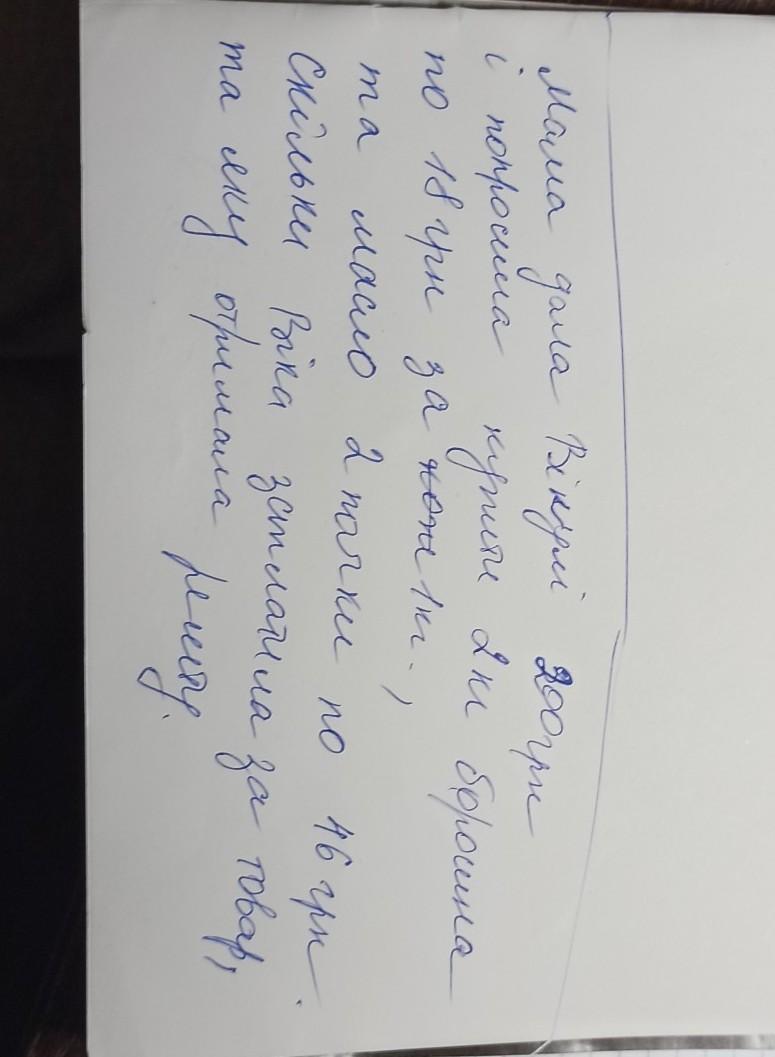 Мама дала Вікулі 200грн
і попросила купити 2кг борошна
по 18 грн за 1кг.,
та масло 2 пачки по 46 грн.
Скільки Віка заплатила за товар,
та яку отримала решту.